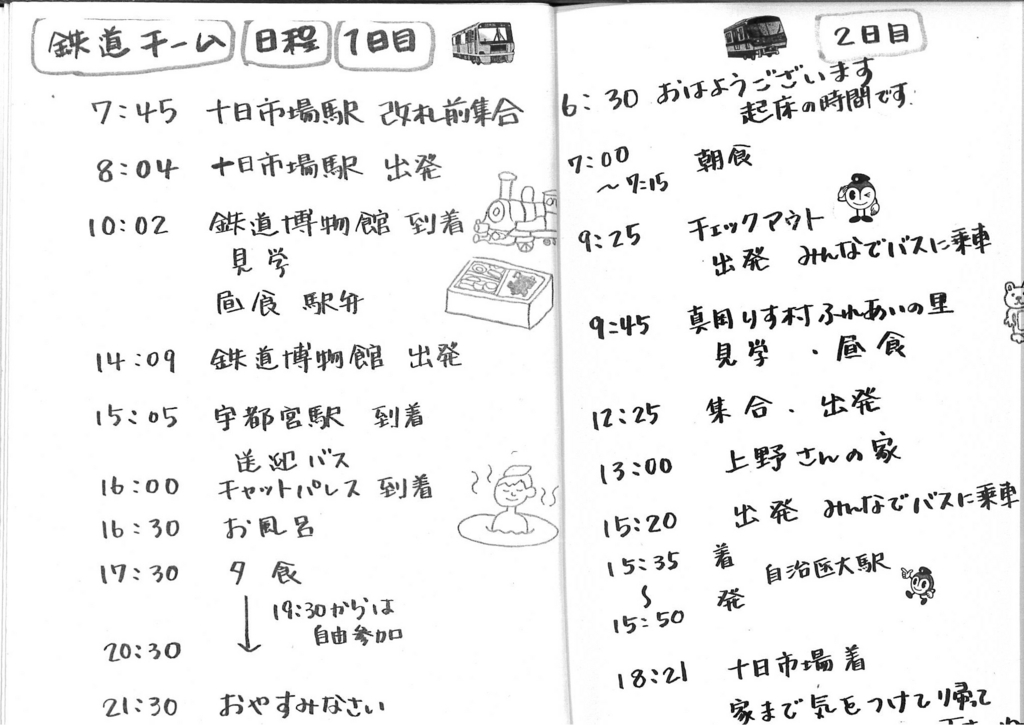 鉄道チーム 日程 1日目
7:45 十日市場駅 改札前集合
8:04 十日市場駅 出発
10:02 鉄道博物館 到着
見学
昼食 駅弁
14:09 鉄道博物館 出発
15:05 宇都宮駅 到着
送迎バス
16:00 チャットパレス 到着
16:30 お風呂
17:30 夕食
19:30からは
自由参加
20:30
21:30 おやすみなさい
2日目
6:30 おはようございます
起床の時間です.
7:00 朝食
〜7:15
9:25 チェックアウト
出発 みんなでバスに乗車
9:45 真岡りす村ふれあいの里
見学・昼食
12:25 集合・出発
13:00 上野さんの家
15:20 出発 みんなでバスに乗車
15:35 着
〜 自治医大駅
15:50 発
18:21 十日市場着
家まで気をつけて帰って